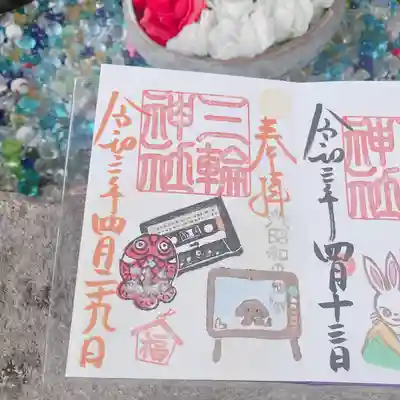 奉拝
昭和の日
三輪
神社
令和三年四月二十九日
福
神社
令和三年四月十三日